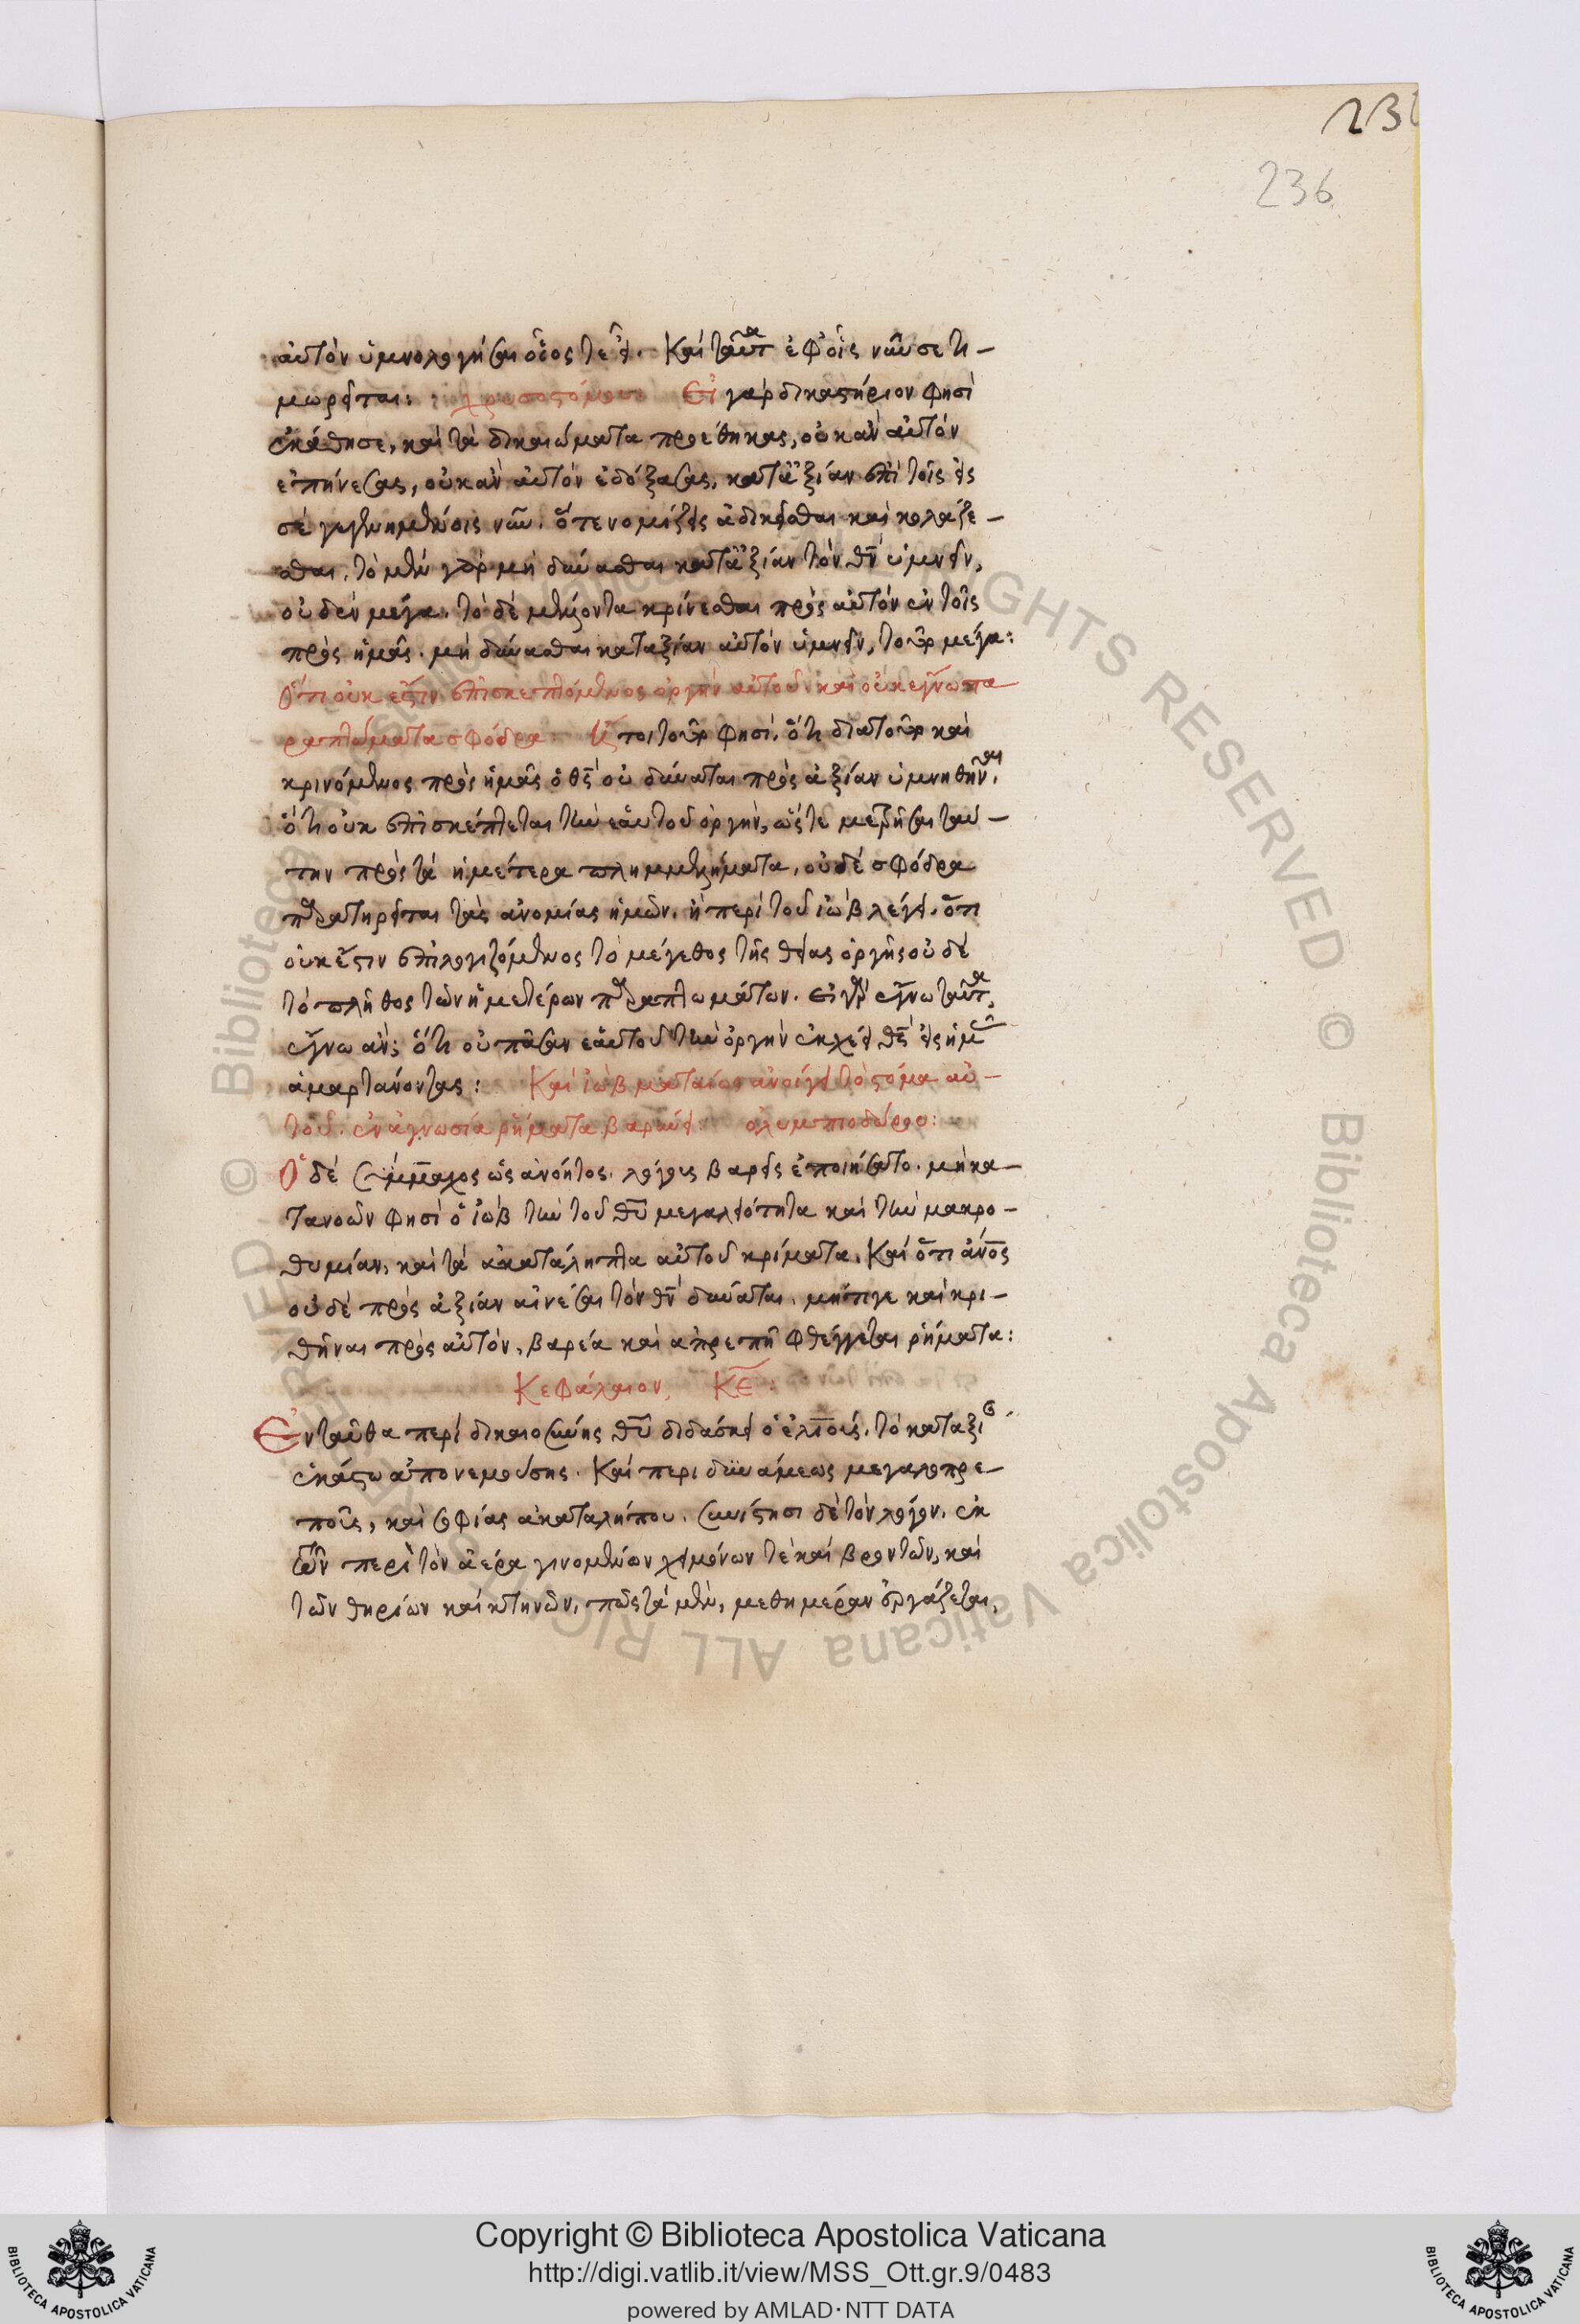 23
236
αὐτὸν ὑμνολογῆσαι οἷός τε εἶ. Καὶ ταῦτα ἐφ οἷς νῦν σε τι-
μωρεῖται: χρυσοστόμου Εἰ γὰρ δικαστήριον φησὶ
ἐκάθησε, καὶ τὰ δικαιώματα προέθηκας, οὐκ ἂν αὐτὸν
ἐπήνεσας, οὐκ ἂν αὐτὸν ἐδόξασας, κατ' ἀξίαν ἐπὶ τοῖς εἰς
σὲ γεγενημένοις νῦν. ὅτε νομίζεις ἀδικεῖσθαι καὶ κολάζε-
σθαι. τὸ μὲν γὰρ μὴ δύνασθαι κατ' ἀξίαν τὸν θν ὑμνεῖν,
οὐδὲν μέγα. τὸ δὲ μέλλοντα κρίνεσθαι πρὸς αὐτὸν ἐν τοῖς
πρὸς ἡμᾶς. μὴ δύνασθαι καταξίαν αὐτὸν ὑμνεῖν, τοῦτο μέγα:
Ὅτι οὐκ ἔστιν ἐπισκεπτόμενος ὀργὴν αὐτοῦ. καὶ οὐκ ἔγνω πα
ραπτώματα σφόδρα: Ἤτοι τοῦτο φησί. ὅτι διατοῦτο καὶ
κρινόμενος πρὸς ἡμᾶς ὁ θς οὐ δύναται πρὸς ἀξίαν ὑμνηθῆναι.
ὅτι οὐκ ἐπισκέπτεται τὴν ἑαυτοῦ ὀργήν, ὥστε μετρῆσαι ταύ-
την πρὸς τὰ ἡμέτερα πλημμελήματα, οὐδὲ σφόδρα
παρατηρεῖται τὰς ἀνομίας ἡμῶν. ἢ περὶ τοῦ ἰὼβ λέγει. ὅτι
οὐκ ἔστιν ἐπιλογιζόμενος τὸ μέγεθος τῆς θείας ὀργῆς οὐδὲ
τὸ πλῆθος τῶν ἡμετέρων παραπτωμάτων. εἰ γὰρ ἔγνω ταῦτα,
ἔγνω ἂν; ὅτι οὐ πᾶσαν ἑαυτοῦ τὴν ὀργὴν ἐκχέει θς εἰς ἡμᾶς
ἁμαρτάνοντας: Καὶ ἰὼβ ματαίως ἀνοίγει τὸ στόμα αὐ-
τοῦ. ἐν ἀγνωσία ῥήματα βαρύνει: ὀλυμπιοδώρου:
Ὁ δὲ Σύμμαχος ὡς ἀνόητος. λόγους βαρεῖς ἐποιήσατο. μὴ κα-
τανοῶν φησὶ ὁ ἰὼβ τὴν τοῦ θυ μεγαλειότητα καὶ τὴν μακρο-
θυμίαν, καὶ τὰ ἀκατάληπτα αὐτοῦ κρίματα. Καὶ ὅτι ἄνος
οὐδὲ πρὸς ἀξίαν αἰνέσαι τὸν θν δύναται. μήτιγε καὶ κρι-
θῆναι πρὸς αὐτόν, βαρέα καὶ ἀπρεπῆ φθέγγεται ῥήματα:
Κεφάλαιον, ΚΕ:
Ἐνταῦθα περὶ δικαιοσύνης θυ διδάσκει ὁ ἐλιούς. τὸ καταξίαν
ἑκάστω ἀπονεμούσης. Καὶ περι δυνάμεως μεγαλοπρε-
ποῦς, καὶ σοφίας ἀκαταλήπτου. συνίστησι δὲ τὸν λόγον. ἐκ
τῶν περὶ τὸν ἀέρα γινομένων χειμώνων τὲ καὶ βροντῶν, καὶ
τῶν θηρίων καὶ κτηνῶν, πῶς τὰ μὲν, μεθημέραν ἐργάζεται,
Copyright © Biblioteca Apostolica Vaticana
http://digi.vatlib.it/view/MSS_Ott.gr.9/0483
powered by AMLAD·NTT DATA
BIBLIOTECA APOSTOLICA VATICANA
BIBLIOTECA APOSTOLICA VATICANA